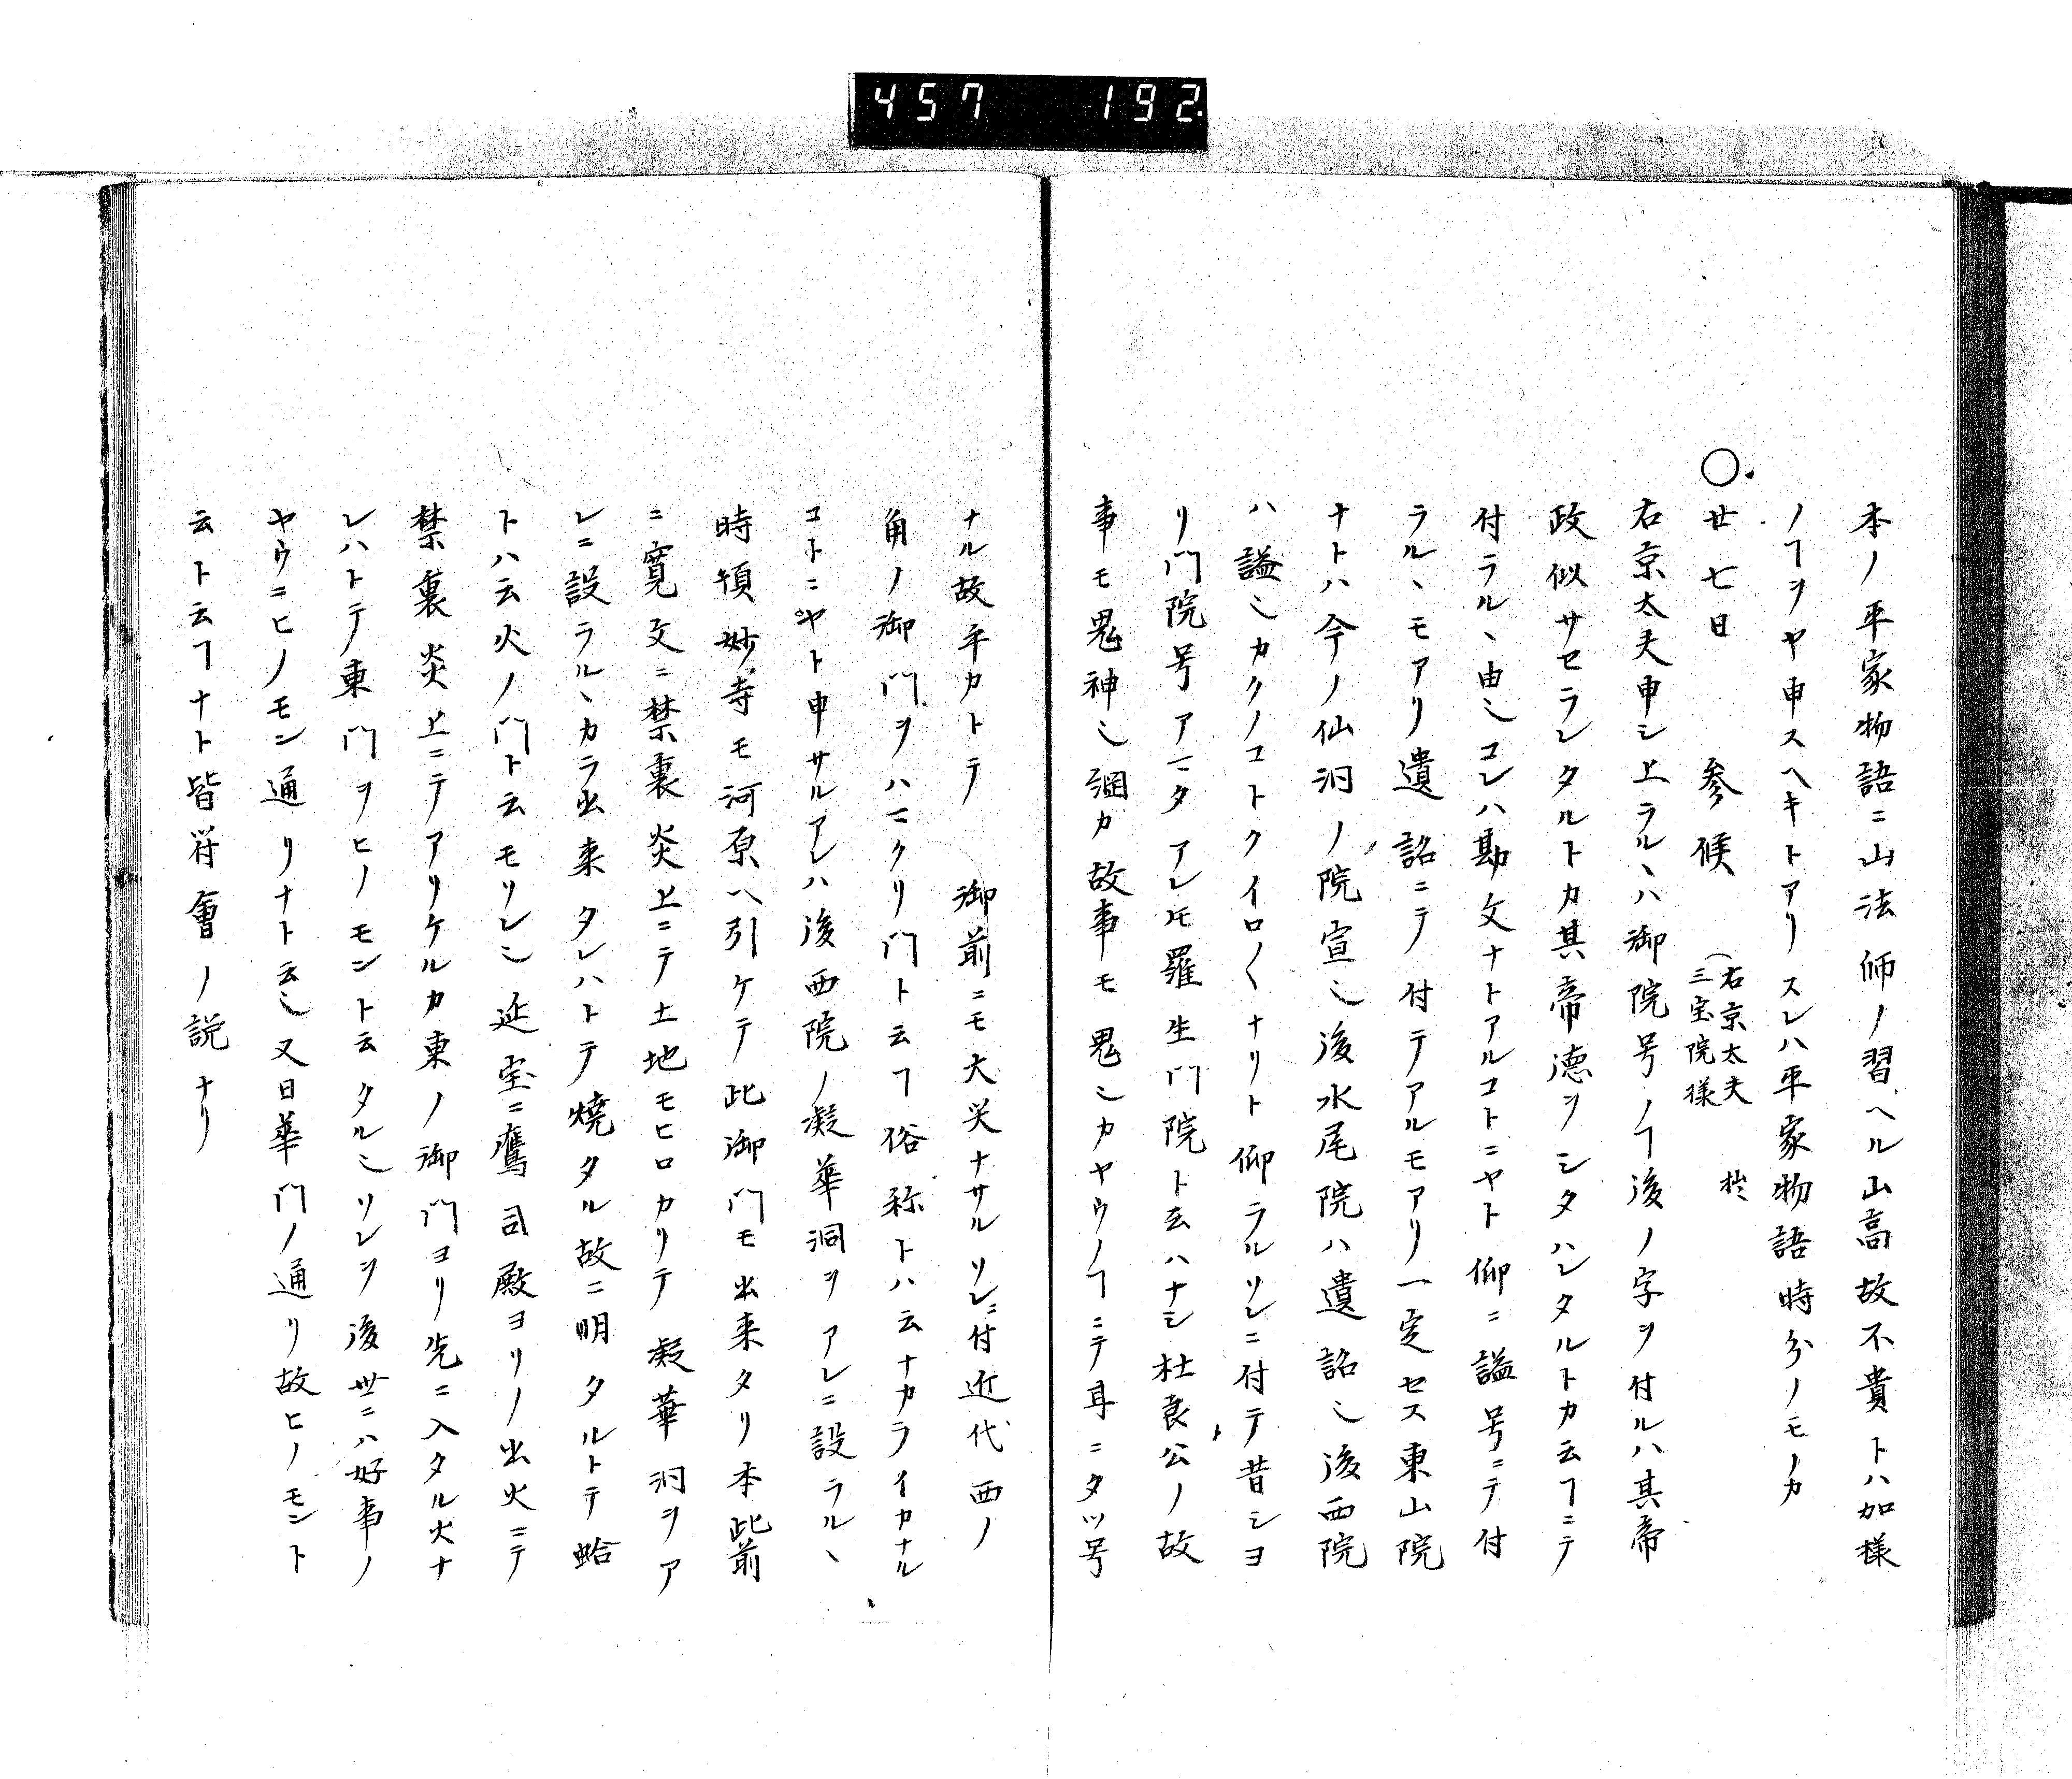 457 192.
本ノ平家物語ニ山法師ノ習ヘル山高故不貴トハ加様
ノヿヲヤ申スヘキトアリスレハ平家物語時分ノモノカ
〇廿七日 参候 (右京太夫 三宝院様
右京太夫申シ上ラルヽハ御院号ノヿ後ノ字ヲ付ルハ其帝
政似サセランタルトカ其帝徳ヲシタハレタルトカ云ヿニテ
付ラルヽ由也コレハ勘文ナトアルコトニヤト仰ニ謚号ニテ付
ラルヽモアリ遺詔ニテ付テアルモアリ一定セス東山院
ナトハ今ノ仙洞ノ院宣也後水尾院ハ遺詔也後西院
ハ謚也カクノコトクイロ〱ナリト仰ラルソレニ付テ昔シヨ
リ門院号アマタアレ𪜈羅生門院ト云ハナシ杜哀公ノ故
事モ鬼神也綱カ故事モ鬼也カヤウノヿニテ耳ニタツ号
ナル故乎カトテ 御前ニモ大笑ナサルソレニ付近代西ノ
角ノ御門ヲハマクリ門ト云ヿ俗称トハ云ナカライカナル
コトニヤト申サルアレハ後西院ノ凝華洞ヲアレニ設ラルヽ
時頓妙寺モ河原ヘ引ケテ此御門モ出来タリ本此前
ニ寛文ニ禁裏炎上ニテ土地モヒロカリテ凝華洞ヲア
レニ設ラルヽカラ出来タレハトテ焼タル故ニ明タルトテ蛤
トハ云火ノ門ト云モソレ也延宝ニ鷹司殿ヨリノ出火ニテ
禁裏炎上ニテアリケルカ東ノ御門ヨリ先ニ入タル火ナ
レハトテ東門ヲヒノモント云タル也ソレヲ後世ニハ好事ノ
ヤウニヒノモン通リナト云也又日華門ノ通リ故ヒノモント
云ト云ヿナト皆符會ノ説ナリ